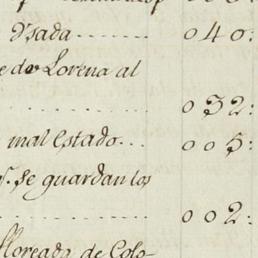 Usada ........ 040:
e de Lorena al
............... 032:
mal estado... 005:
s. se guardan los
............... 002:
floreada de Colo-